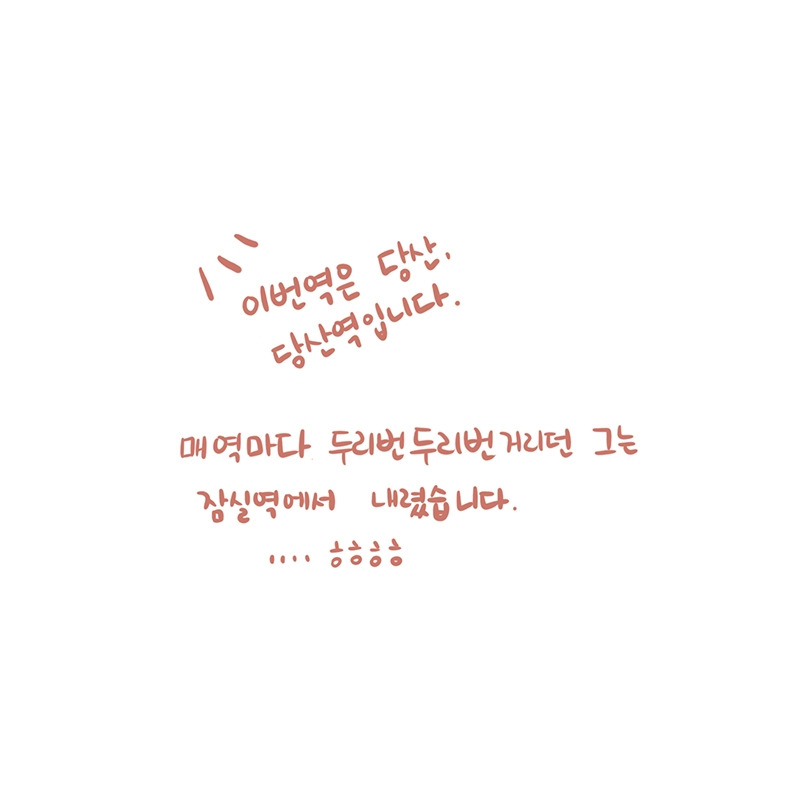 이번역은 당산,
당산역입니다.
매 역마다 두리번두리번거리던 그는
잠실역에서 내렸습니다.
.... ㅎㅎㅎㅎ